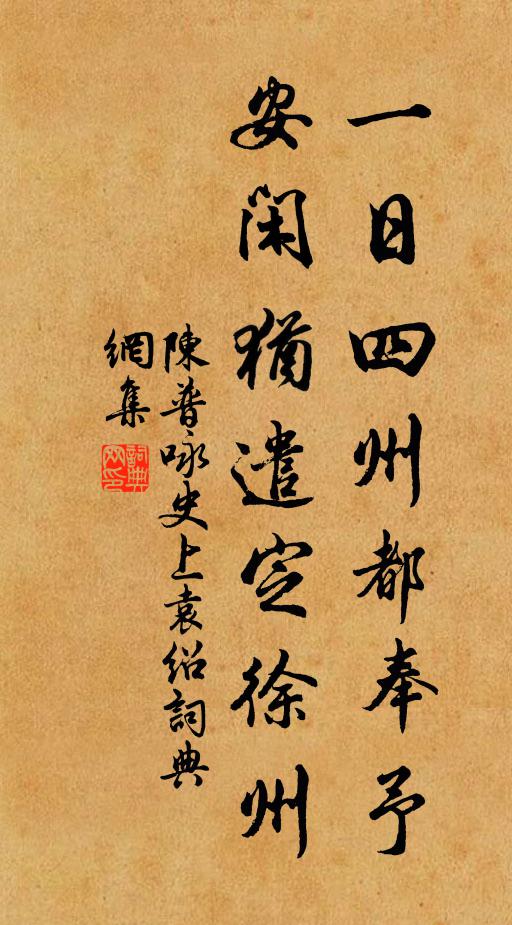 一日四州都奉予
安閑猶遣定徐州
陳普咏史上袁紹詞典
網集
詞典
网印